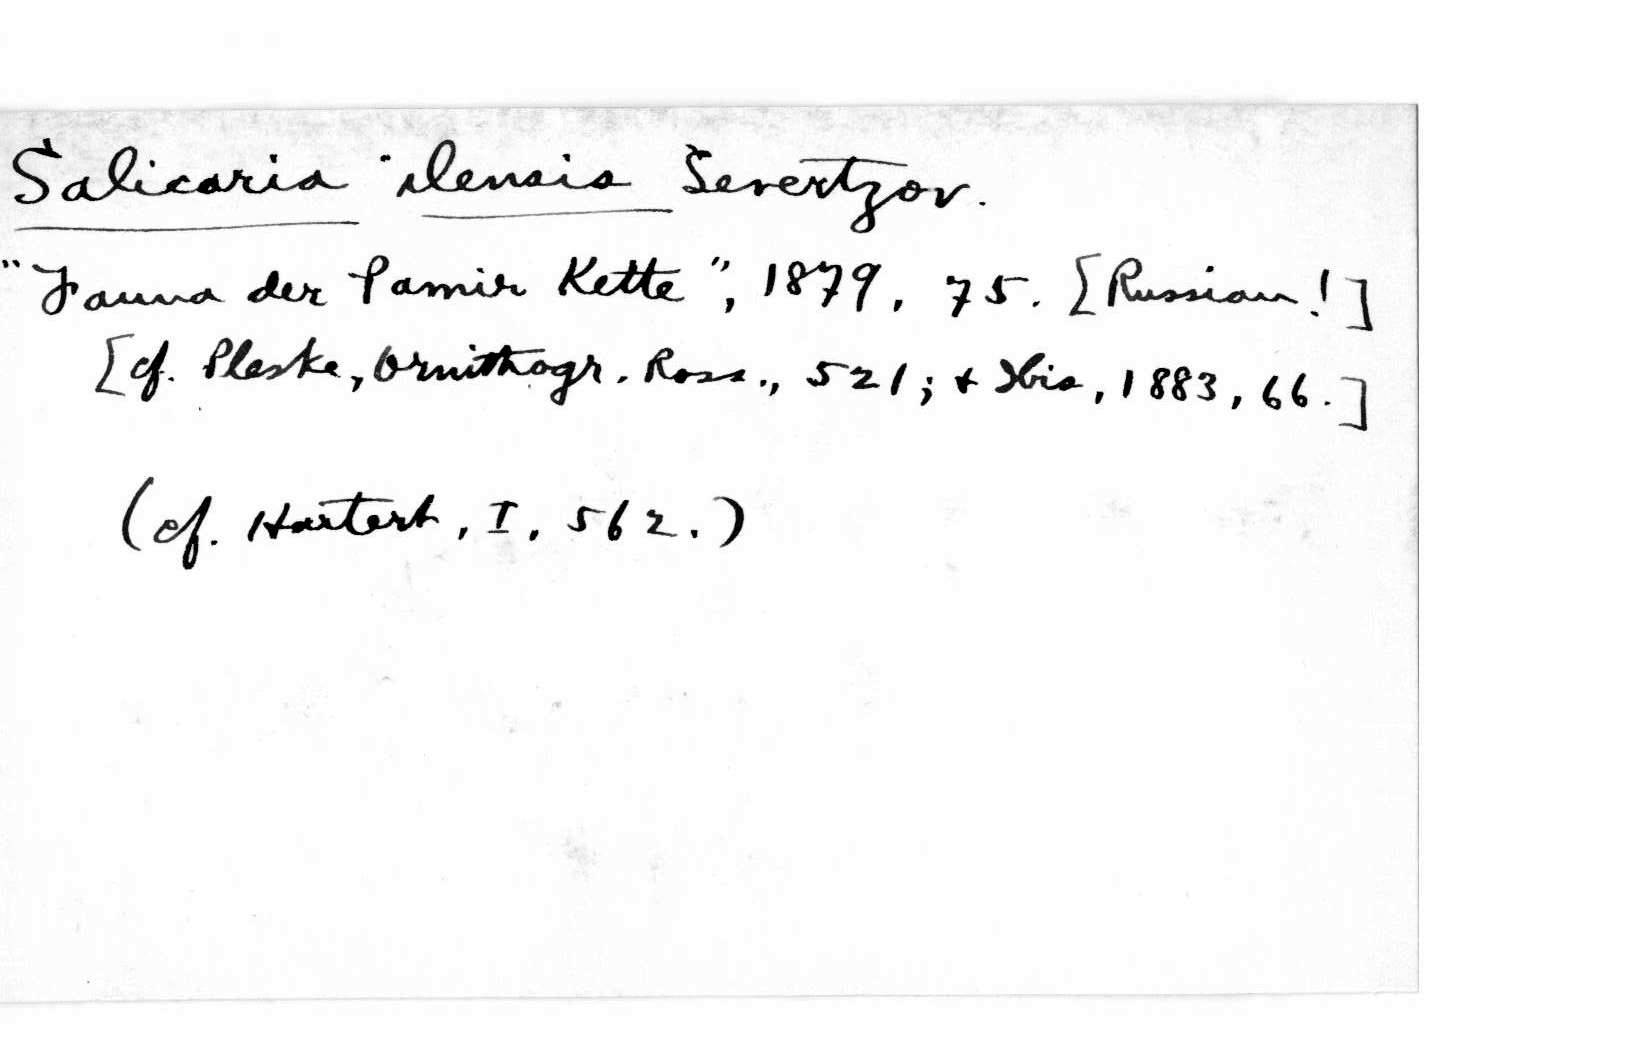 Salicaria ilensis Severtzov.
"Fauna der Pamir Kette", 1879, 75. [Russian!]
[cf. Pleske, Ornithogr. Ross., 521; & Ibis, 1883, 66.]
(cf. Hartert, I, 562.)